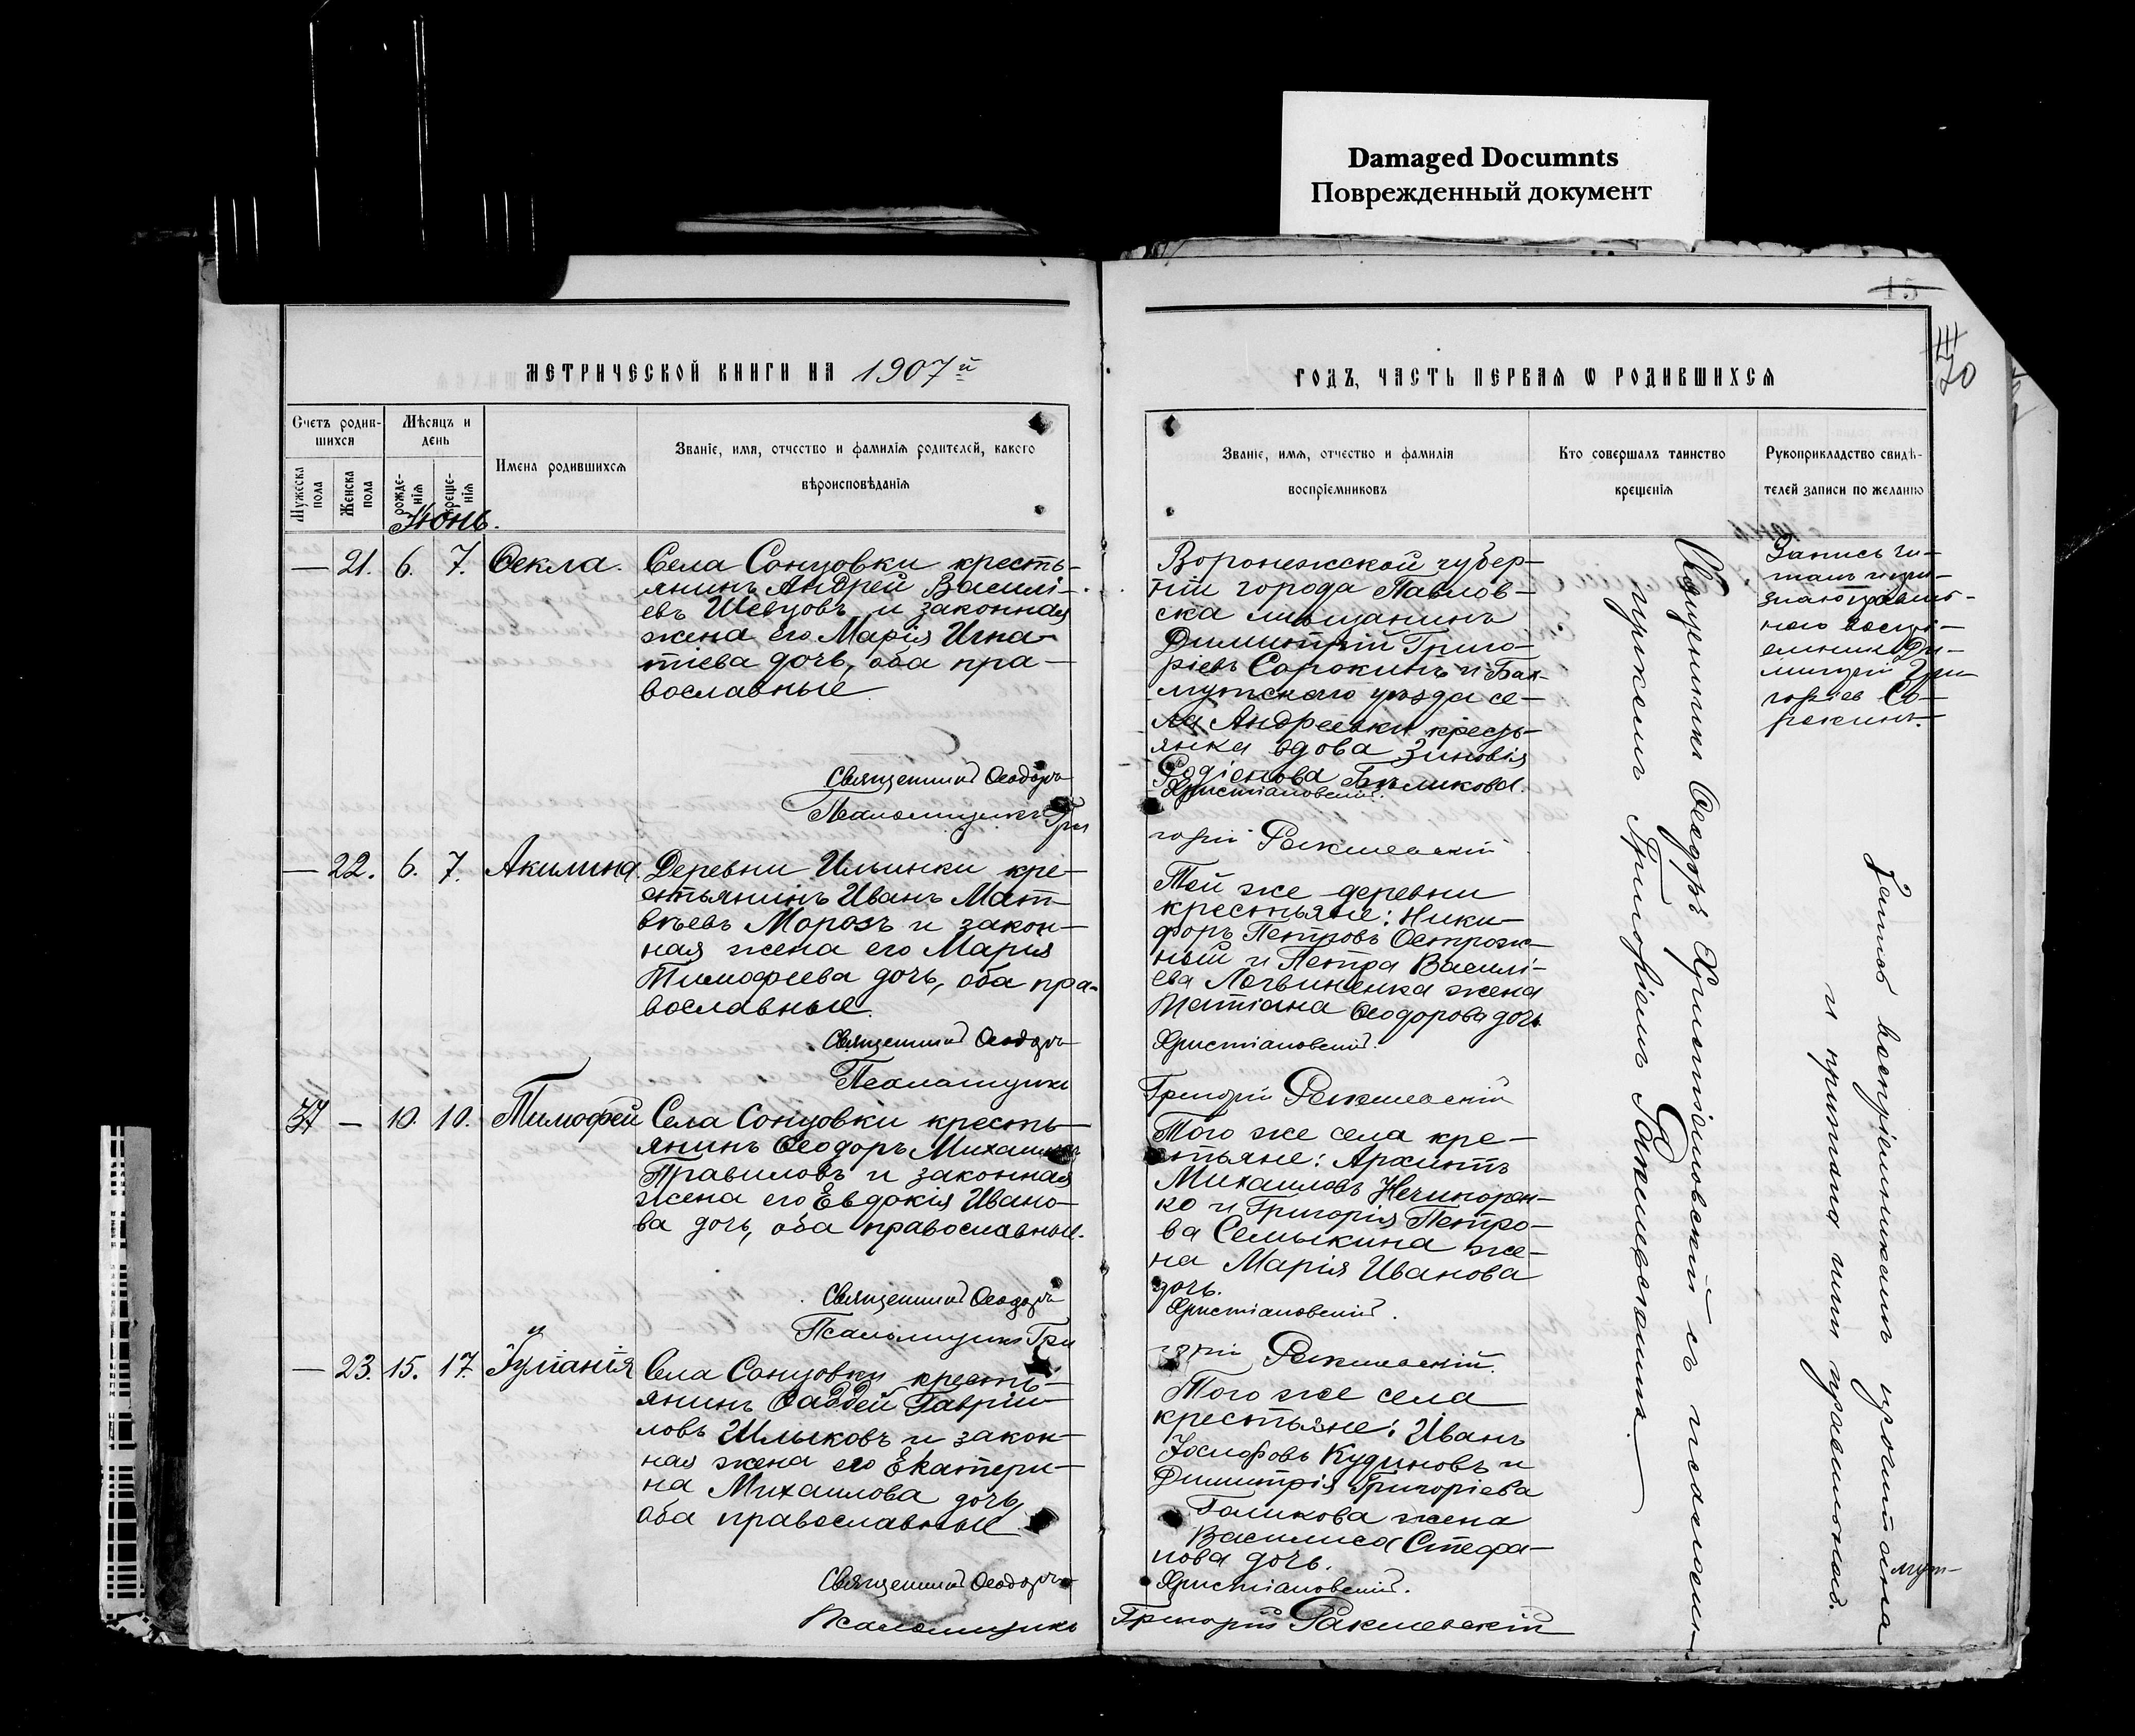 Damaged Documnts
Поврежденный документ
15
20
МЕТРИЧЕСКОЙ КНИГИ НА 1907й
ГОДЪ, ЧАСТЬ ПЕРВАЯ Ѡ РОДИВШИХСЯ
Счетъ родив-
шихся
Мужеска
пола
Женска
пола
Мѣсяцъ и
день
рожде-
нія
креще-
нія
Имена родившихся
Званіе, имя, отчество и фамилія родителей, какого
вѣроисповѣданія
Званіе, имя, отчество и фамилія
воспріемниковъ
Кто совершалъ таинство
крещенія
Рукоприкладство свидѣ-
телей записи по желанію
Июнь.
— 21. 6. 7. Ѳекла.
Села Сонцовки кресть-
янинъ Андрей Василі-
евъ Шевцовъ и законная
жена его Марія Игна-
тіева дочь, оба пра-
вославные
Священникъ Ѳеодоръ
Псаломщикъ Гри
Воронежской губер-
ніи города Павлов-
ска мѣщанинъ
Димитрій Григо-
ріевъ Сорокинъ и Бах-
мутскаго уѣзда се-
ла Андреевки кресть-
янка вдова Зиновія
Родіонова
Христіановскій.
горій Ракшевскій
Запись чи-
талъ
воспрі-
емникъ Ди-
митрій Гри-
горіев Со-
рокинъ.
— 22. 6. 7. Акилина.
Деревни Ильинки кре-
стьянинъ Иванъ Мат-
вѣевъ Морозъ и закон-
ная жена его Марія
Тимофеева дочь, оба пра-
вославные.
Священникъ Ѳеодоръ
Псаломщикъ
Той же деревни
крестьяне: Ники-
форъ Петровъ Острож-
ный и Петра Василі-
ева Логвиненка жена
Татіана Ѳеодорова дочь
Христіановскій.
Григорій Ракшевскій
37 — 10. 10. Тимофей
Села Сонцовки кресть-
янинъ Ѳеодоръ Михаиловъ
Травиловъ и законная
жена его Евдокія Ивано-
ва дочь, оба православные.
Священникъ Ѳеодоръ
Псаломщикъ Гри
Того же села кре-
стьяне: Архиппъ
Михаиловъ Нечипорен-
ко и Григорія Петро-
ва Семыкина же-
на Марія Иванова
дочь.
Христіановскій.
горій Ракшевскій.
— 23. 15. 17. Іуліанія
Села Сонцовки кресть-
янинъ Ѳаддей Гаврии-
ловъ Шлыковъ и закон-
ная жена его Екатери-
на Михаилова дочь,
оба православные
Священникъ Ѳеодоръ
Псаломщикъ
Того же села
крестьяне: Иванъ
Іосифовъ Кудиновъ и
Димитрія Григоріева
Голикова жена
Василиса Стефа-
нова дочь.
Христіановскій.
Григорій Ракшевскій
Священникъ Ѳеодоръ Христіановскій съ псаломщи-
Григоріемъ Ракшевскимъ.
Запись воспріемникамъ прочитана
и признана ими правильной.